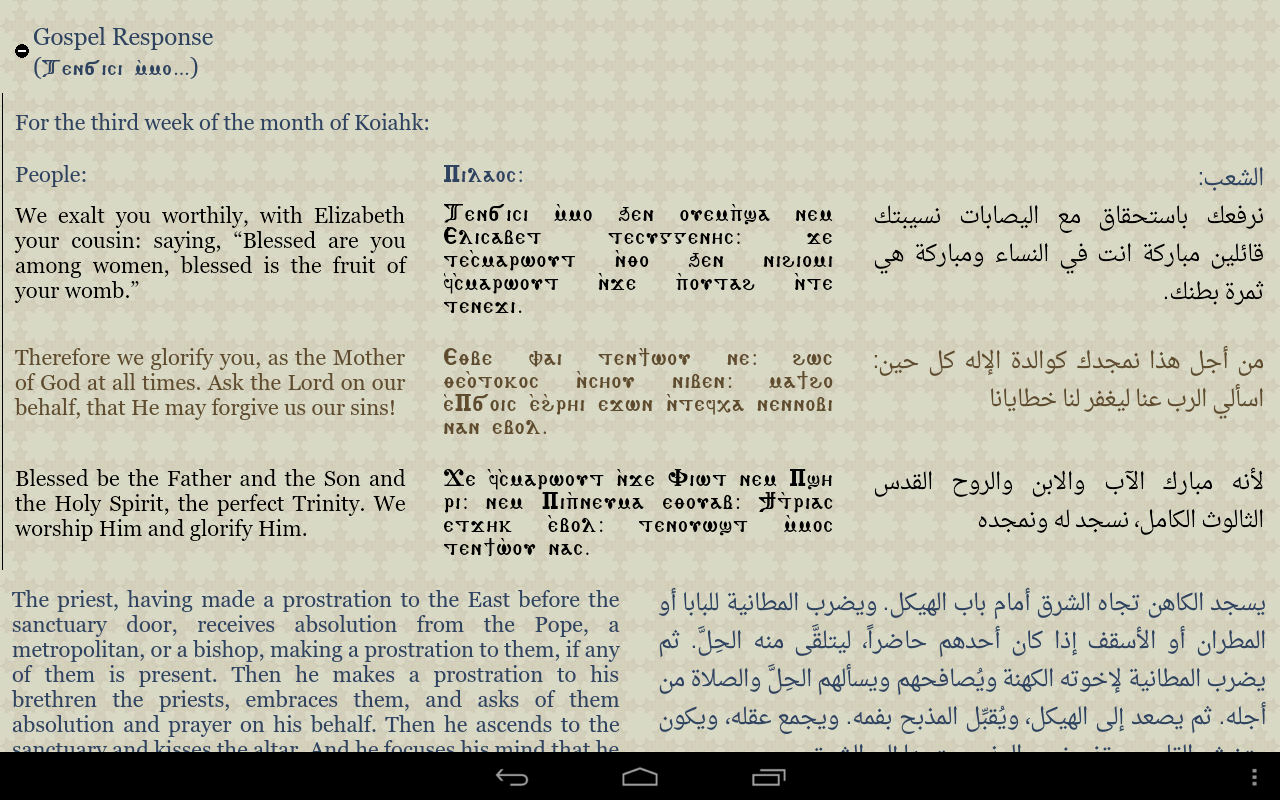 Gospel Response
(Ⲧⲉⲛϭⲓⲥⲓ ⲙ̀ⲙⲟ...)
For the third week of the month of Koiahk:
People:
We exalt you worthily, with Elizabeth
your cousin: saying, “Blessed are you
among women, blessed is the fruit of
your womb.”
Ⲡⲓⲗⲁⲟⲥ:
Ⲧⲉⲛϭⲓⲥⲓ ⲙ̀ⲙⲟ ϧⲉⲛ ⲟⲩⲉⲙⲡ̀ϣⲁ ⲛⲉⲙ
Ⲉⲗⲓⲥⲁⲃⲉⲧ ⲧⲉⲥⲩⲅⲅⲉⲛⲏⲥ: ϫⲉ
ⲧⲉⲥ̀ⲙⲁⲣⲱⲟⲩⲧ ⲛ̀ⲑⲟ ϧⲉⲛ ⲛⲓϩⲓⲟⲙⲓ
ϥ̀ⲥ̀ⲙⲁⲣⲱⲟⲩⲧ ⲛ̀ϫⲉ ⲡ̀ⲟⲩⲧⲁϩ ⲛ̀ⲧⲉ
ⲧⲉⲛⲉϫⲓ.
الشعب:
نرفعك باستحقاق مع اليصابات نسيبتك
قائلين مباركة انت في النساء ومباركة هي
ثمرة بطنك.
Therefore we glorify you, as the Mother
of God at all times. Ask the Lord on our
behalf, that He may forgive us our sins!
Ⲉⲑⲃⲉ ⲫⲁⲓ ⲧⲉⲛϯⲱⲟⲩ ⲛⲉ: ϩⲱⲥ
ⲑⲉⲟ̀ⲧⲟⲕⲟⲥ ⲛ̀ⲥⲏⲟⲩ ⲛⲓⲃⲉⲛ: ⲙⲁϯϩⲟ
ⲉ̀Ⲡϭⲟⲓⲥ ⲉ̀ϩ̀ⲣⲏⲓ ⲉϫⲱⲛ ⲛ̀ⲧⲉϥⲭⲁ ⲛⲉⲛⲛⲟⲃⲓ
ⲛⲁⲛ ⲉⲃⲟⲗ.
من أجل هذا نمجدك كوالدة الإله كل حين:
اسألي الرب عنا ليغفر لنا خطايانا
Blessed be the Father and the Son and
the Holy Spirit, the perfect Trinity. We
worship Him and glorify Him.
Ϫⲉ ϥ̀ⲥ̀ⲙⲁⲣⲱⲟⲩⲧ ⲛ̀ϫⲉ Ⲫⲓⲱⲧ ⲛⲉⲙ Ⲡϣⲏ
ⲣⲓ: ⲛⲉⲙ Ⲡⲓⲡ̀ⲛⲉⲩⲙⲁ ⲉⲑⲟⲩⲁⲃ: Ϯⲧ̀ⲣⲓⲁⲥ
ⲉⲧϫⲏⲕ ⲉ̀ⲃⲟⲗ: ⲧⲉⲛⲟⲩⲱϣⲧ ⲙ̀ⲙⲟⲥ
ⲧⲉⲛϯⲱ̀ⲟⲩ ⲛⲁⲥ.
لأنه مبارك الآب والابن والروح القدس
الثالوث الكامل، نسجد له ونمجده
The priest, having made a prostration to the East before the
sanctuary door, receives absolution from the Pope, a
metropolitan, or a bishop, making a prostration to them, if any
of them is present. Then he makes a prostration to his
brethren the priests, embraces them, and asks of them
absolution and prayer on his behalf. Then he ascends to the
sanctuary and kisses the altar. And he focuses his mind that he
يسجد الكاهن تجاه الشرق أمام باب الهيكل. ويضرب المطانية للبابا أو
المطران أو الأسقف إذا كان أحدهم حاضراً، ليتلقَّى منه الحِلَّ. ثم
يضرب المطانية لإخوته الكهنة ويُصافحهم ويسألهم الحِلَّ والصلاة من
أجله. ثم يصعد إلى الهيكل، ويُقبِّل المذبح بفمه. ويجمع عقله، ويكون